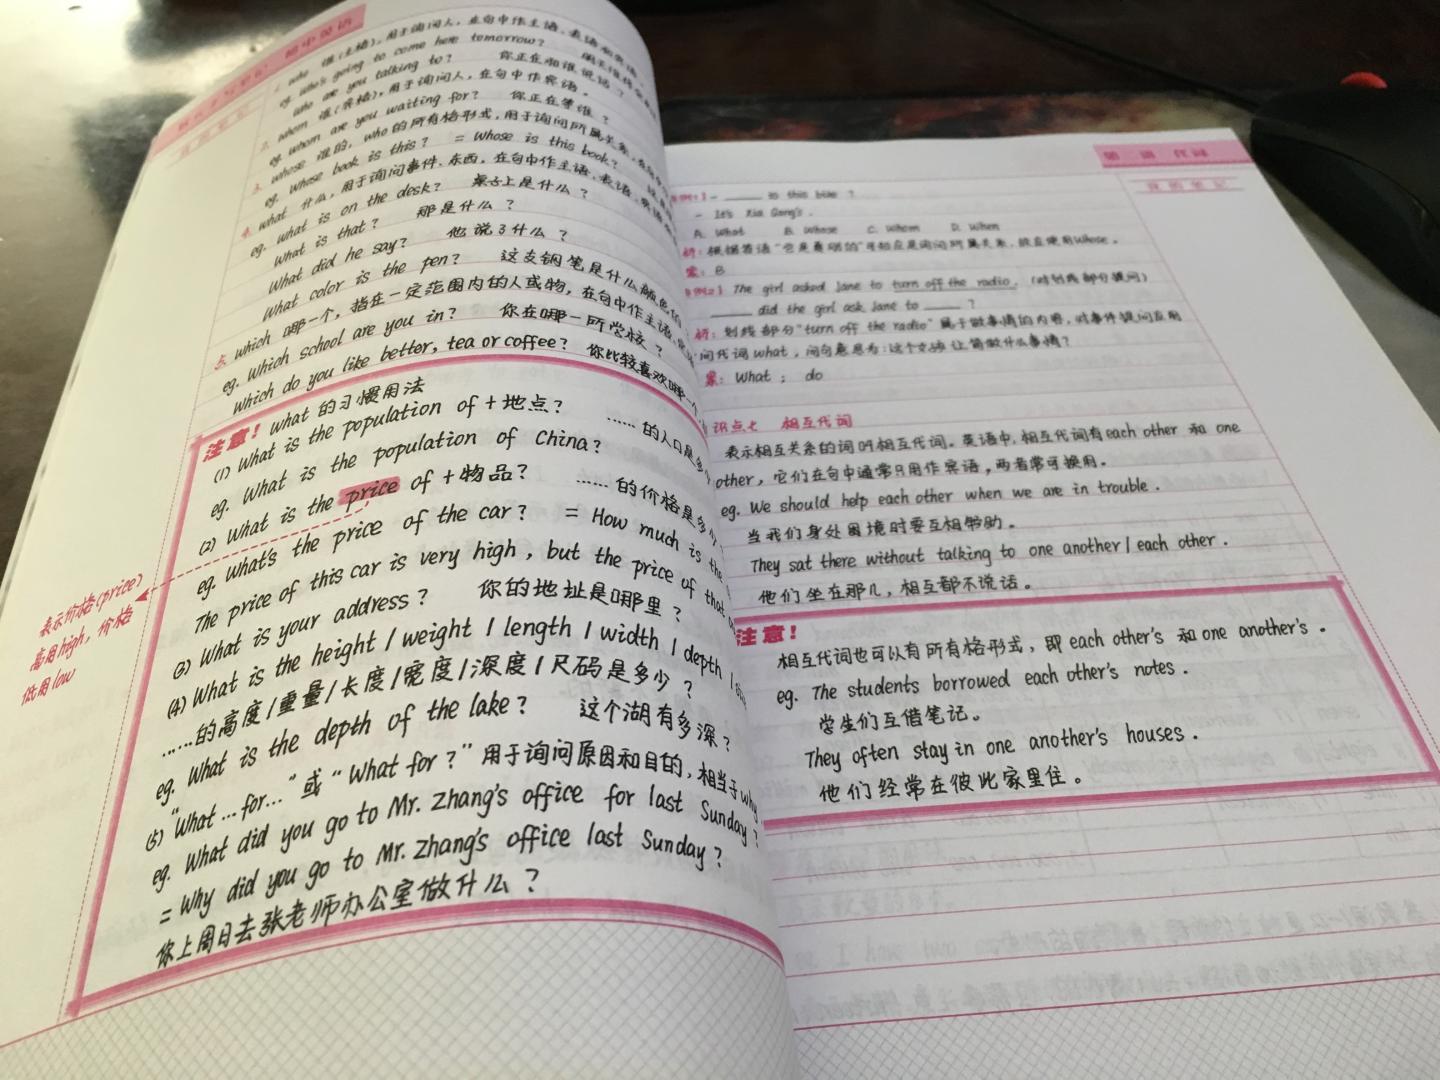 初中英语
1. who 谁(主格),用于询问人,在句中作主语、表语
eg. Who's going to come here tomorrow?
Who are you talking to? 你正在和谁说话?
2. whom 谁(宾格),用于询问人,在句中作宾语。
eg. Whom are you waiting for? 你正在等谁?
3. whose 谁的,who的所有格形式,用于询问所属关系,
eg. Whose book is this? = Whose is this book?
4. what 什么,用于询问事件、东西,在句中作主语、表语、
eg. What is on the desk? 桌子上是什么?
What is that? 那是什么?
What did he say? 他说了什么?
What color is the pen? 这支钢笔是什么颜色的
5. which 哪一个,指在一定范围内的人或物,在句中作主语、
eg. Which school are you in? 你在哪一所学校?
Which do you like better, tea or coffee? 你比较喜欢哪一个
注意! what 的习惯用法
(1) What is the population of + 地点? ……的人口是多少
eg. What is the population of China?
(2) What is the price of + 物品? ……的价格是多少
eg. What's the price of the car? = How much is the
The price of this car is very high, but the price of that
(3) What is your address? 你的地址是哪里?
(4) What is the height / weight / length / width / depth /
……的高度/重量/长度/宽度/深度/尺码是多少?
eg. What is the depth of the lake? 这个湖有多深?
(5) "What … for…" 或 "What for?" 用于询问原因和目的,相当于why
eg. What did you go to Mr. Zhang's office for last Sunday?
= Why did you go to Mr. Zhang's office last Sunday?
你上周日去张老师办公室做什么?
表示价格(price)
高用high,价格
低用low
代词
我的笔记
- ____ is this bike ?
- It's Xia Gang's.
A. What B. Whose C. Whom D. When
析:根据答语"它是夏刚的"可知应是询问所属关系,故应使用Whose。
案:B
The girl asked Jane to turn off the radio. (对划线部分提问)
____ did the girl ask Jane to ____ ?
析:划线部分"turn off the radio"属于做事情的内容,对事件提问应用
问代词what,问句意思为:这个女孩让简做什么事情?
案:What ; do
识点七 相互代词
表示相互关系的词叫相互代词。英语中,相互代词有each other 和 one
other,它们在句中通常只用作宾语,两者常可换用。
eg. We should help each other when we are in trouble.
当我们身处困境时要互相帮助。
They sat there without talking to one another / each other.
他们坐在那儿,相互都不说话。
注意!
相互代词也可以有所有格形式,即 each other's 和 one another's.
eg. The students borrowed each other's notes.
学生们互借笔记。
They often stay in one another's houses.
他们经常在彼此家里住。